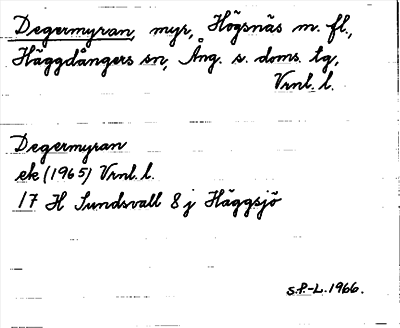 Degermyran, myr, Högsnäs m. fl.,
Häggdångers sn, Ång. s. doms. lg,
Vrnl. l.
Degermyran
ek (1965) Vrnl. l.
17 H Sundsvall 8 j Häggsjö
S.P.-L. 1966.